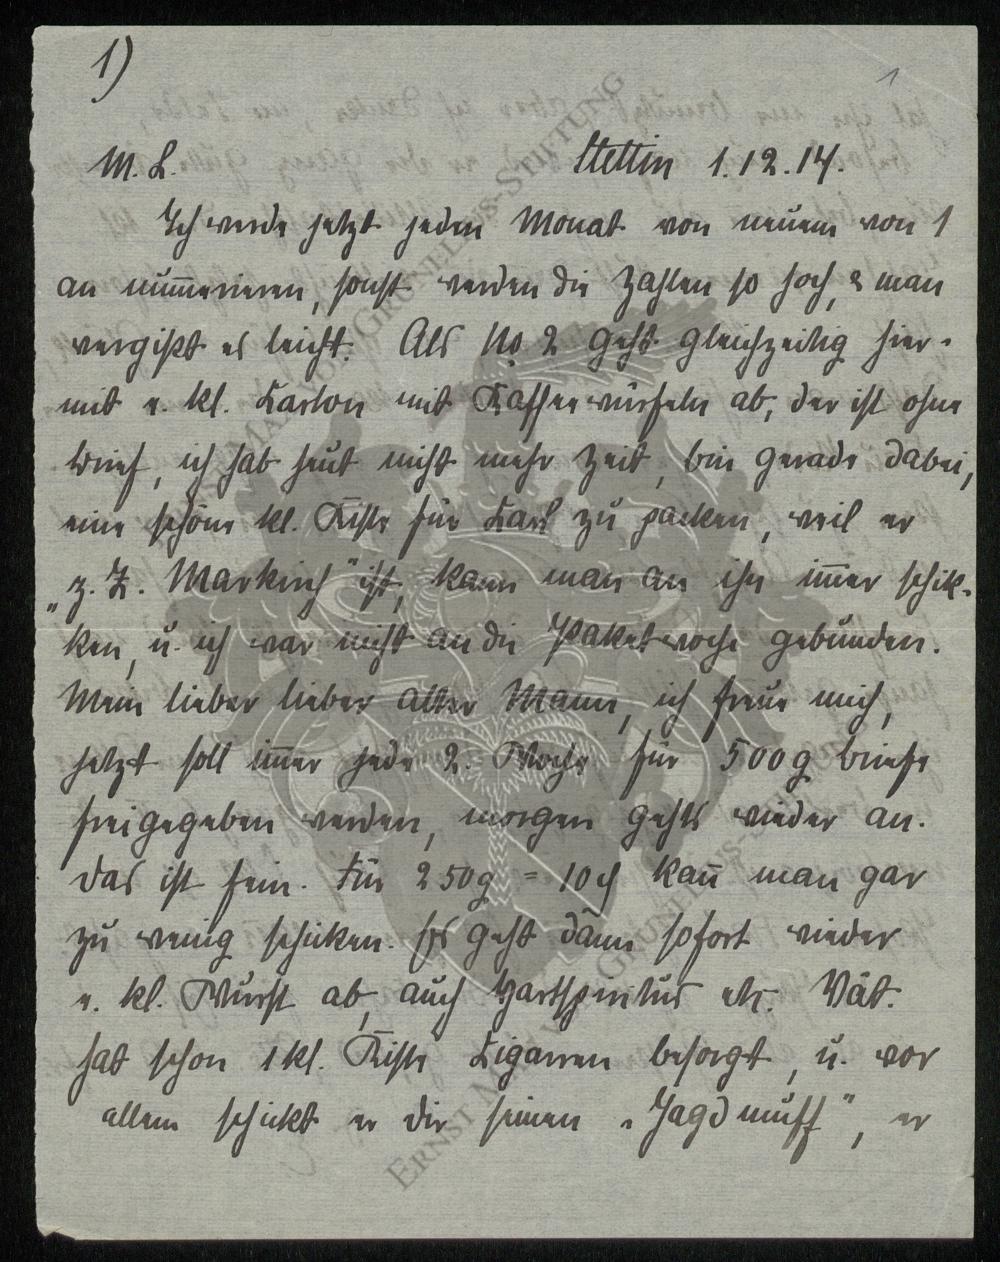 1)
1
M. L. Stettin 1.12.14.
Ich werde jetzt jeden Monat von neuem von 1
an num̅erieren, sonst werden die Zahlen so hoch, & man
vergißt es leicht. Als No 2 geht gleichzeitig hier-
mit e. kl. Karton mit Kaffeewürfeln ab, der ist ohne
Brief, ich hab heut nicht mehr Zeit, bin gerade dabei,
eine schöne kl. Kiste für Karl zu packen, weil er
„z. Z. Markirch“ ist, kann man an ihn im̅er schik-
ken, u. ich war nicht an die Paketwoche gebunden.
Mein lieber lieber alter Mann, ich freue mich,
jetzt soll im̅er jede 2. Woche für 500g Briefe
freigegeben werden, morgen gehts wieder an.
Das ist fein. Für 250g = 10 kan̅ man gar
zu wenig schicken. Es geht dann sofort wieder
e. kl. Wurst ab, auch Hartspiritus etc. Vat.
hat schon 1 kl. Kiste Cigarren besorgt, u. vor
allem schickt er dir seinen „Jagdmuff“, er
ERNST MAX VON GRUNELIUS-STIFTUNG
ERNST MAX VON GRUNELIUS-STIFTUNG